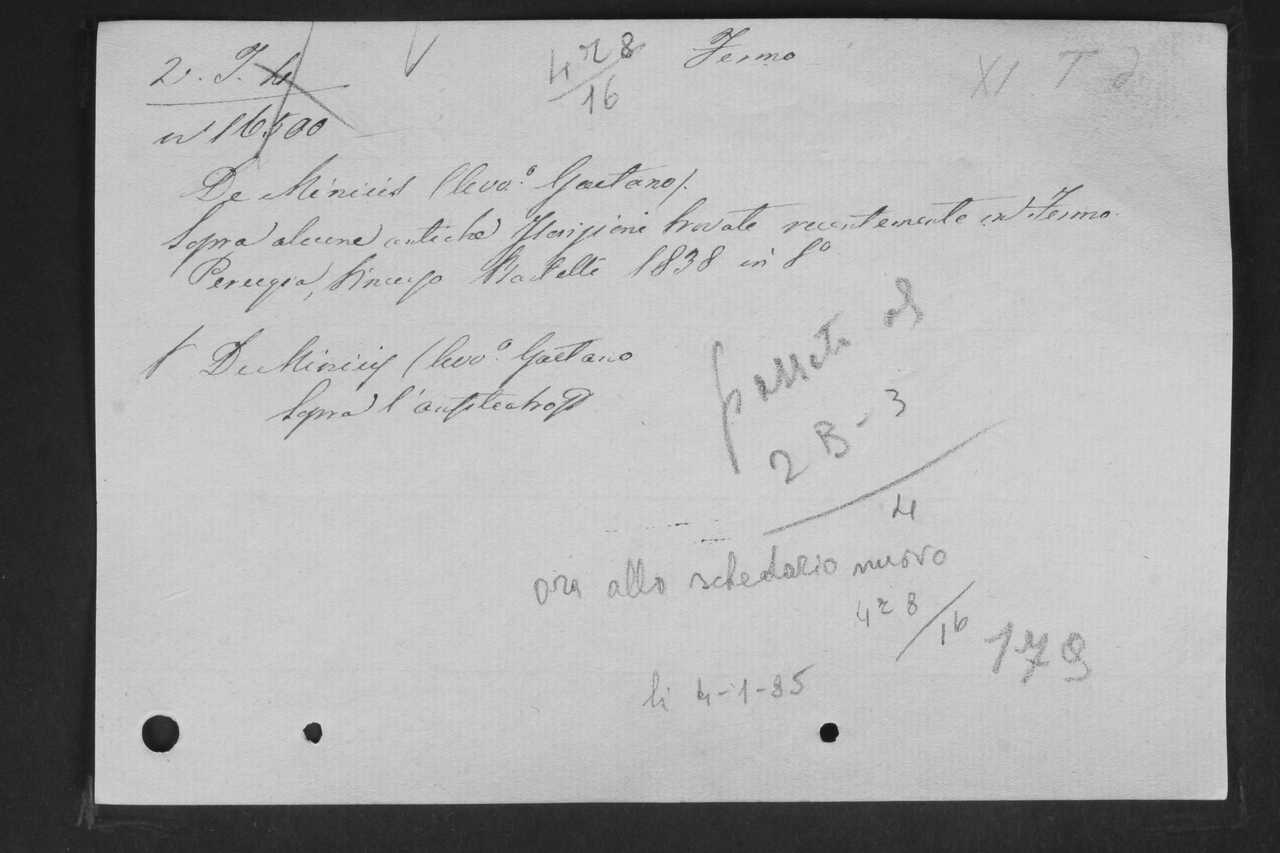 2. T. h
4 r 8
16
Fermo
XI T d
n° 16500
De Minicis (Cavo. Gaetano).
Sopra alcune antiche Iscrizioni trovate recentemente in Fermo.
Perugia, Vincenzo Bartelli 1838 in 8°
De Minicis (Cavo. Gaetano
Sopra l'anfiteatro
passato al
2 B - 3
4
ora allo schedario nuovo
4 r 8 / 16
179
li 4-1-85